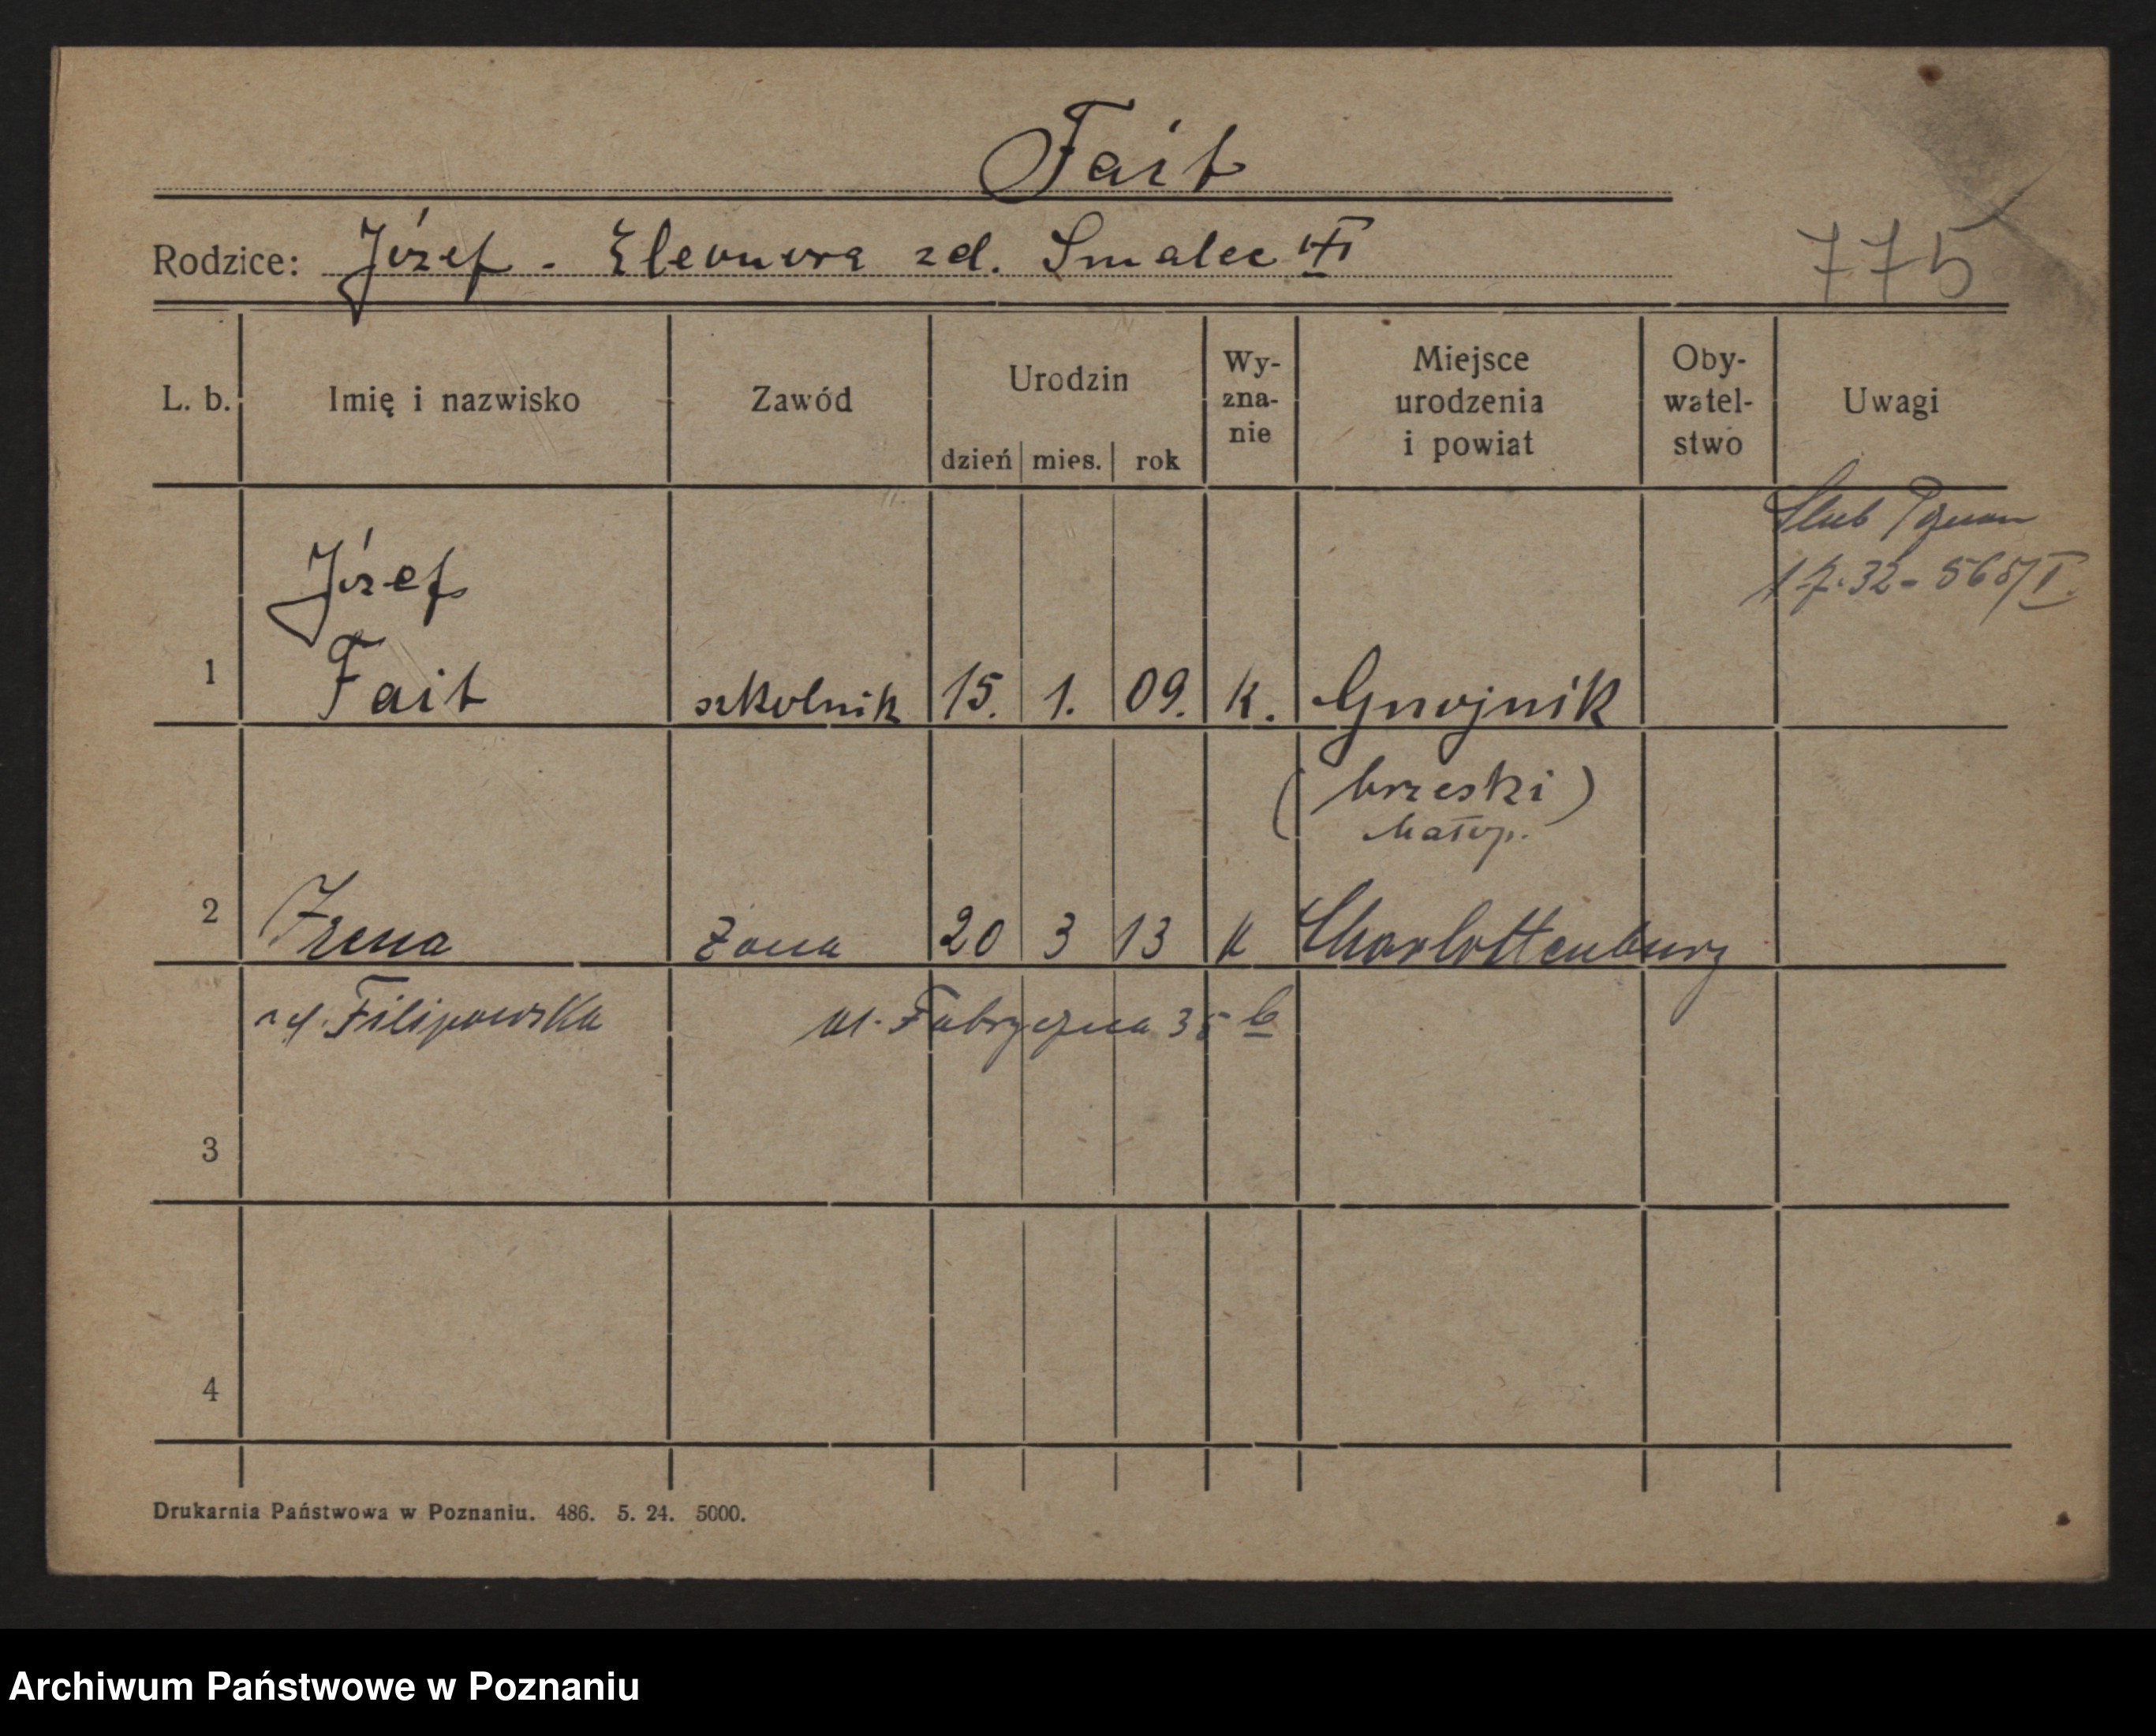 Fait
Rodzice: Józef - Eleonora zd. Smalec
775
L. b. Imię i nazwisko Zawód Urodzin dzień mies. rok Wy-zna-nie Miejsce urodzenia i powiat Oby-watel-stwo Uwagi
Ślub Poznań
17.32 - 565/I.
Józef
1 Fait szkolnik 15. 1. 09. k. Gnojnik
(brzeski)
Małop.
2 Irena żona 20 3 13 k Charlottenburg
zd. Filipowska ul. Fabryczna 35 b
3
4
Drukarnia Państwowa w Poznaniu. 486. 5. 24. 5000.
Archiwum Państwowe w Poznaniu